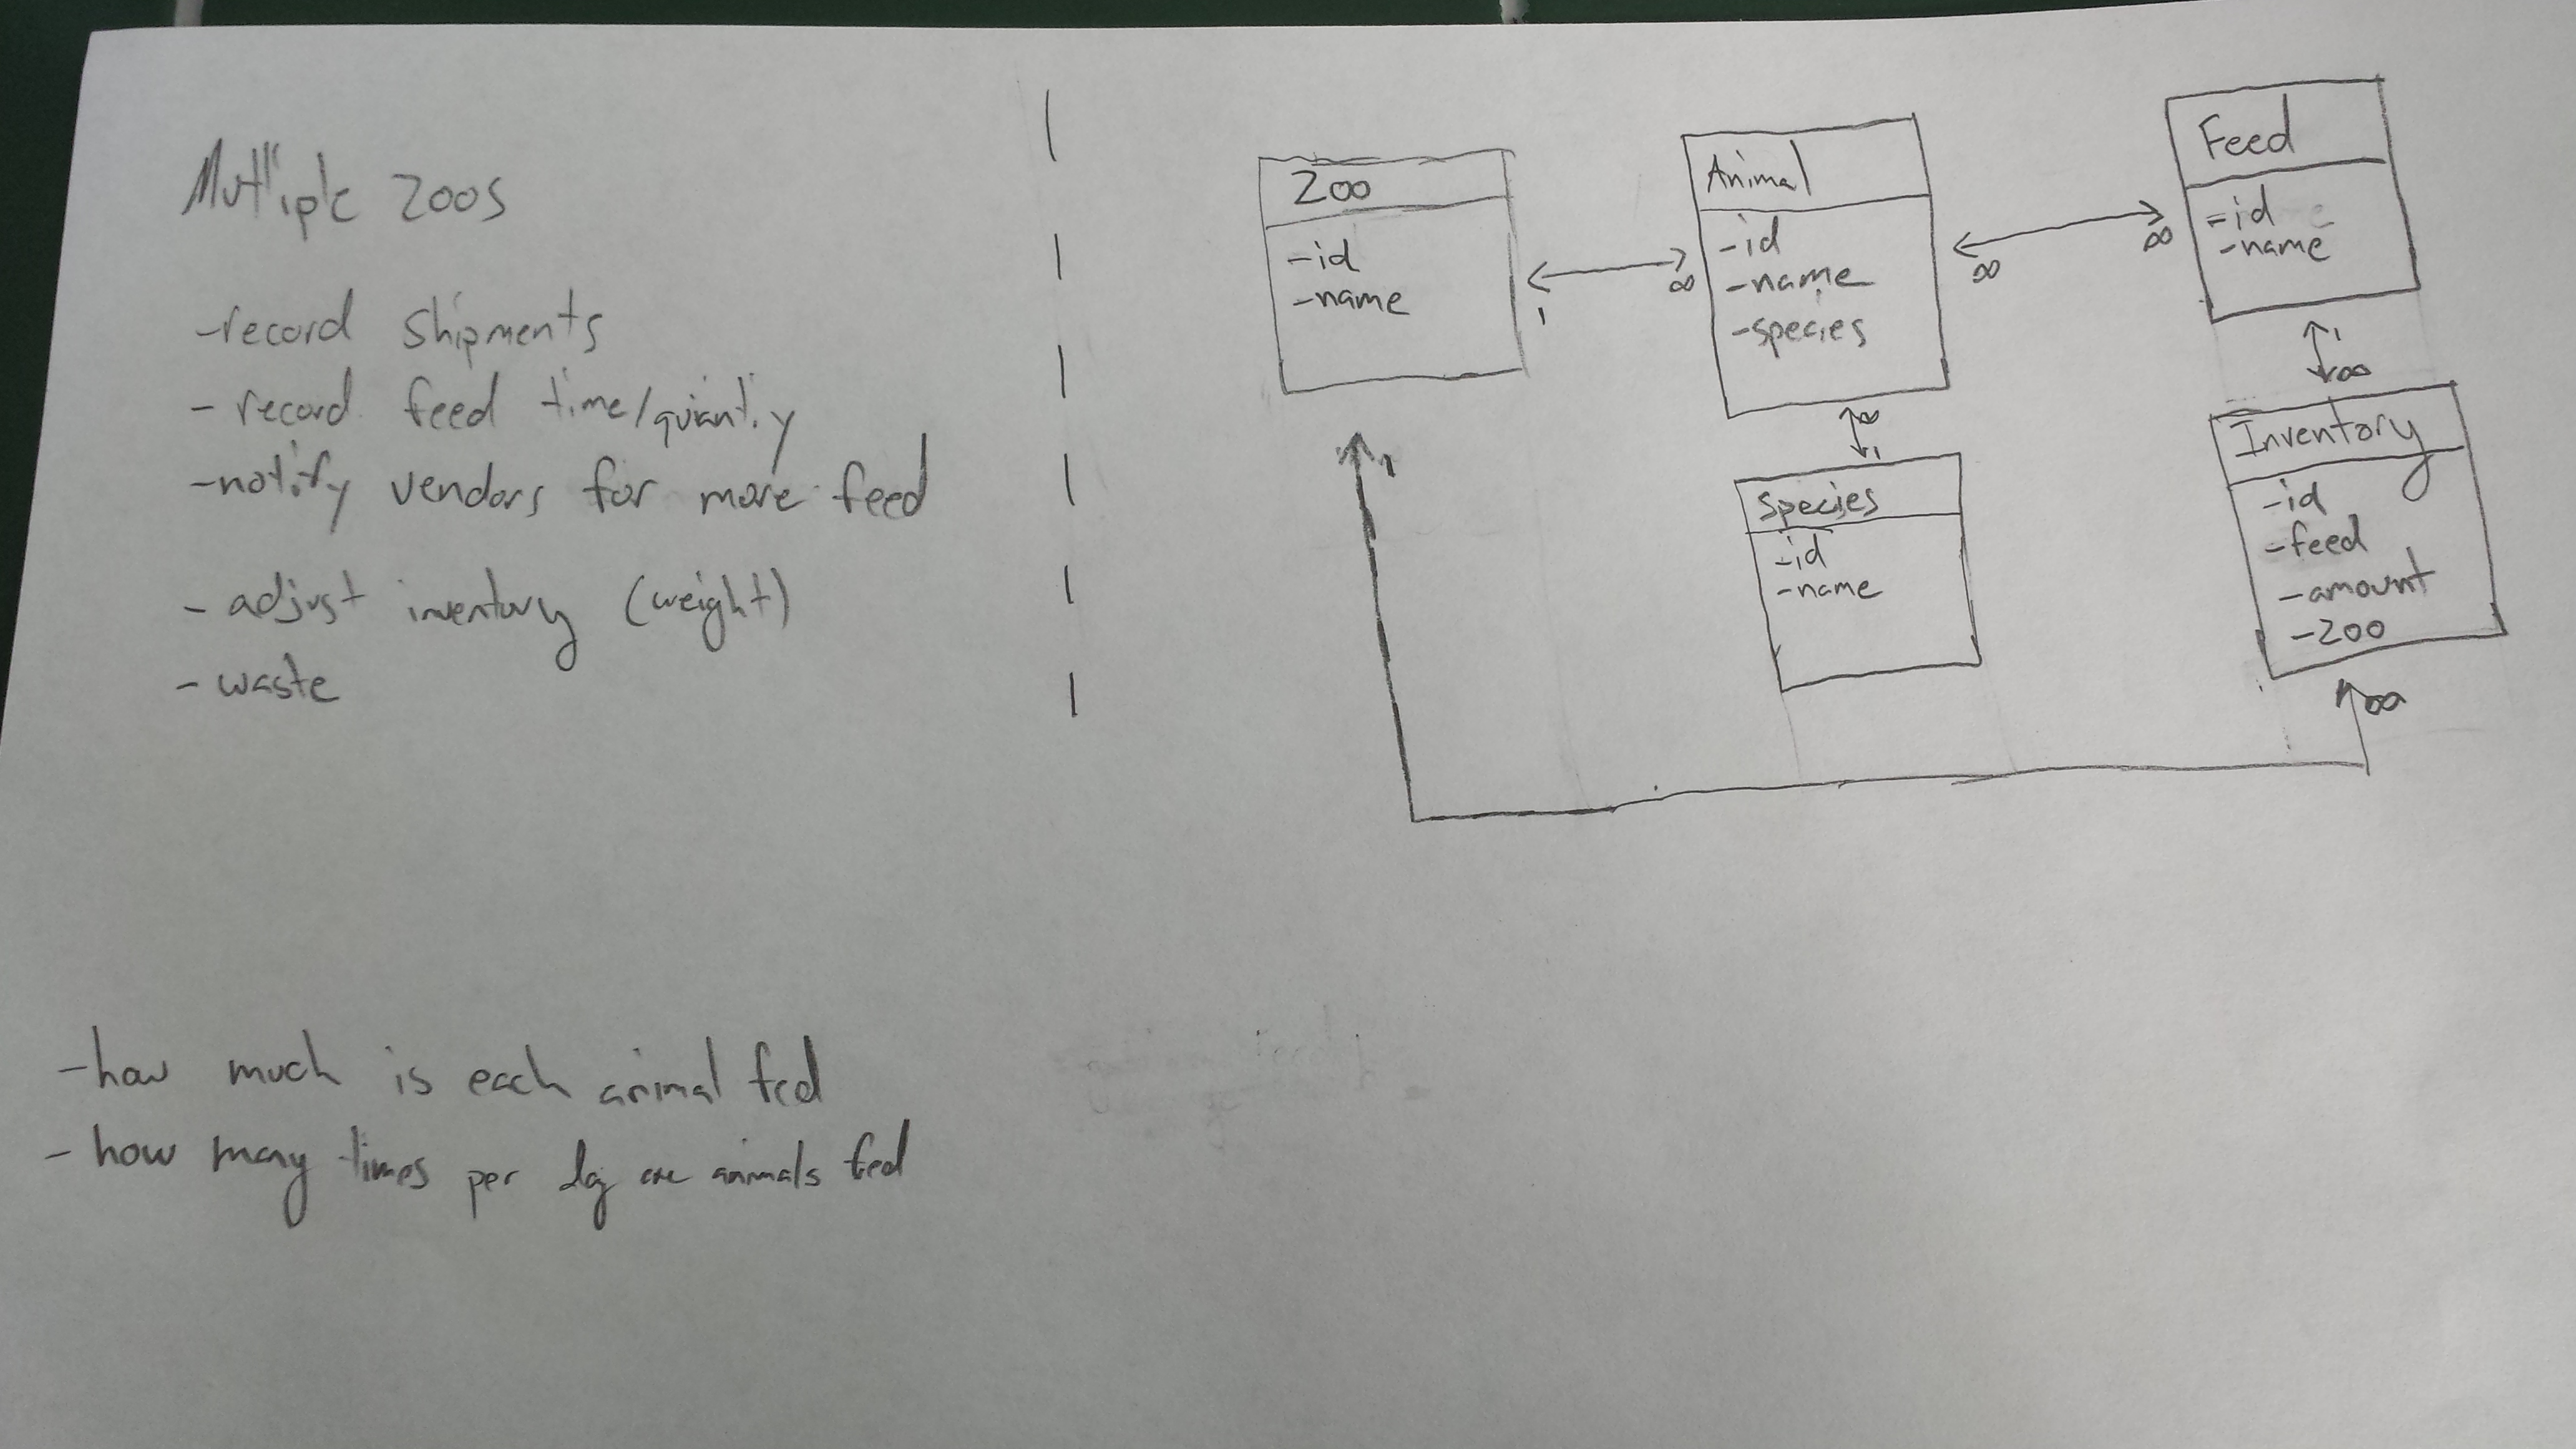 Mutliple zoos
-record shipments
- record feed time/quantity
-notify vendors for more feed
- adjust inventory (weight)
- waste
-how much is each animal fed
- how many times per day are animals fed
Zoo
-id
-name
1
∞
Animal
-id
-name
-species
∞
∞
Feed
-id
-name
∞
1
Species
-id
-name
1
∞
Inventory
-id
-feed
-amount
-zoo
1
∞